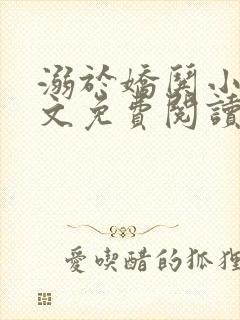 溺於嬌鬨小
文免費閱讀
愛喫醋的狐狸